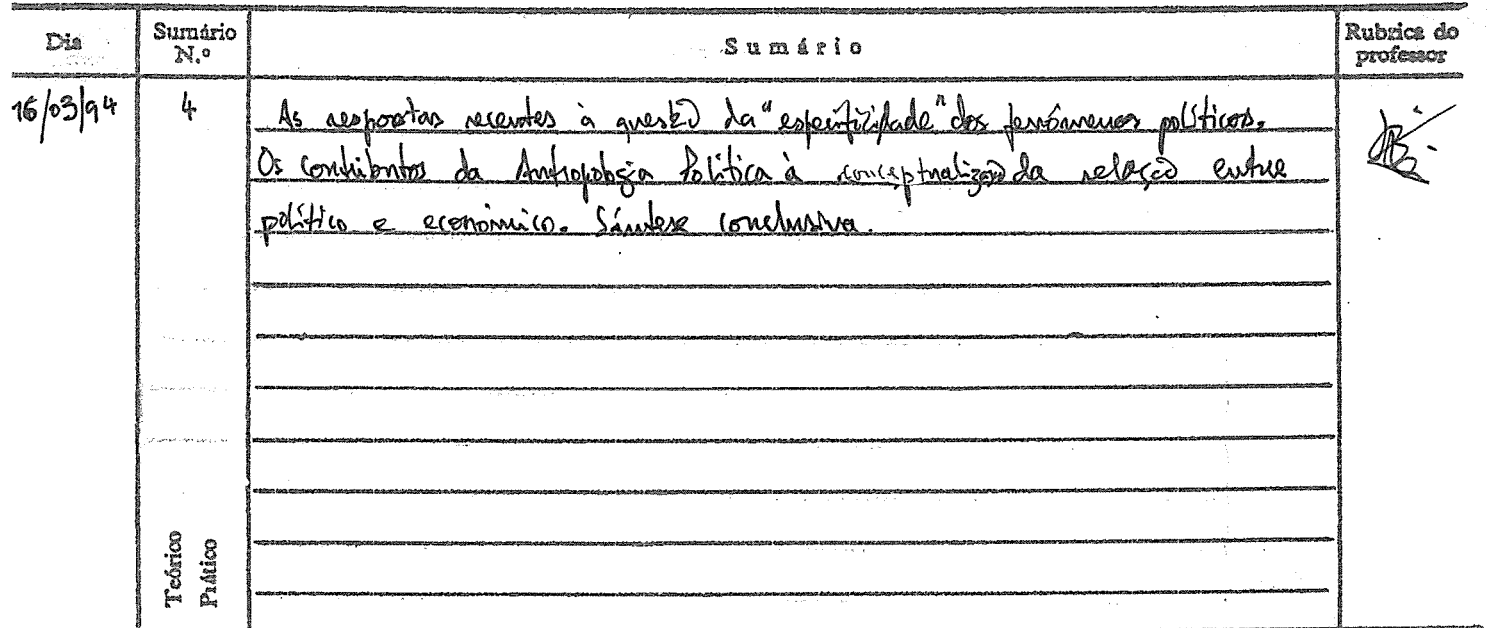 Dia
Sumário N.º
Sumário
Rubrica do professor
16/03/94
4
As respostas recentes à questão da "especificidade" dos fenómenos políticos.
Os contributos da Antropologia Política à conceptualização da relação entre
político e económico. Síntese conclusiva.
Teórico
Prático